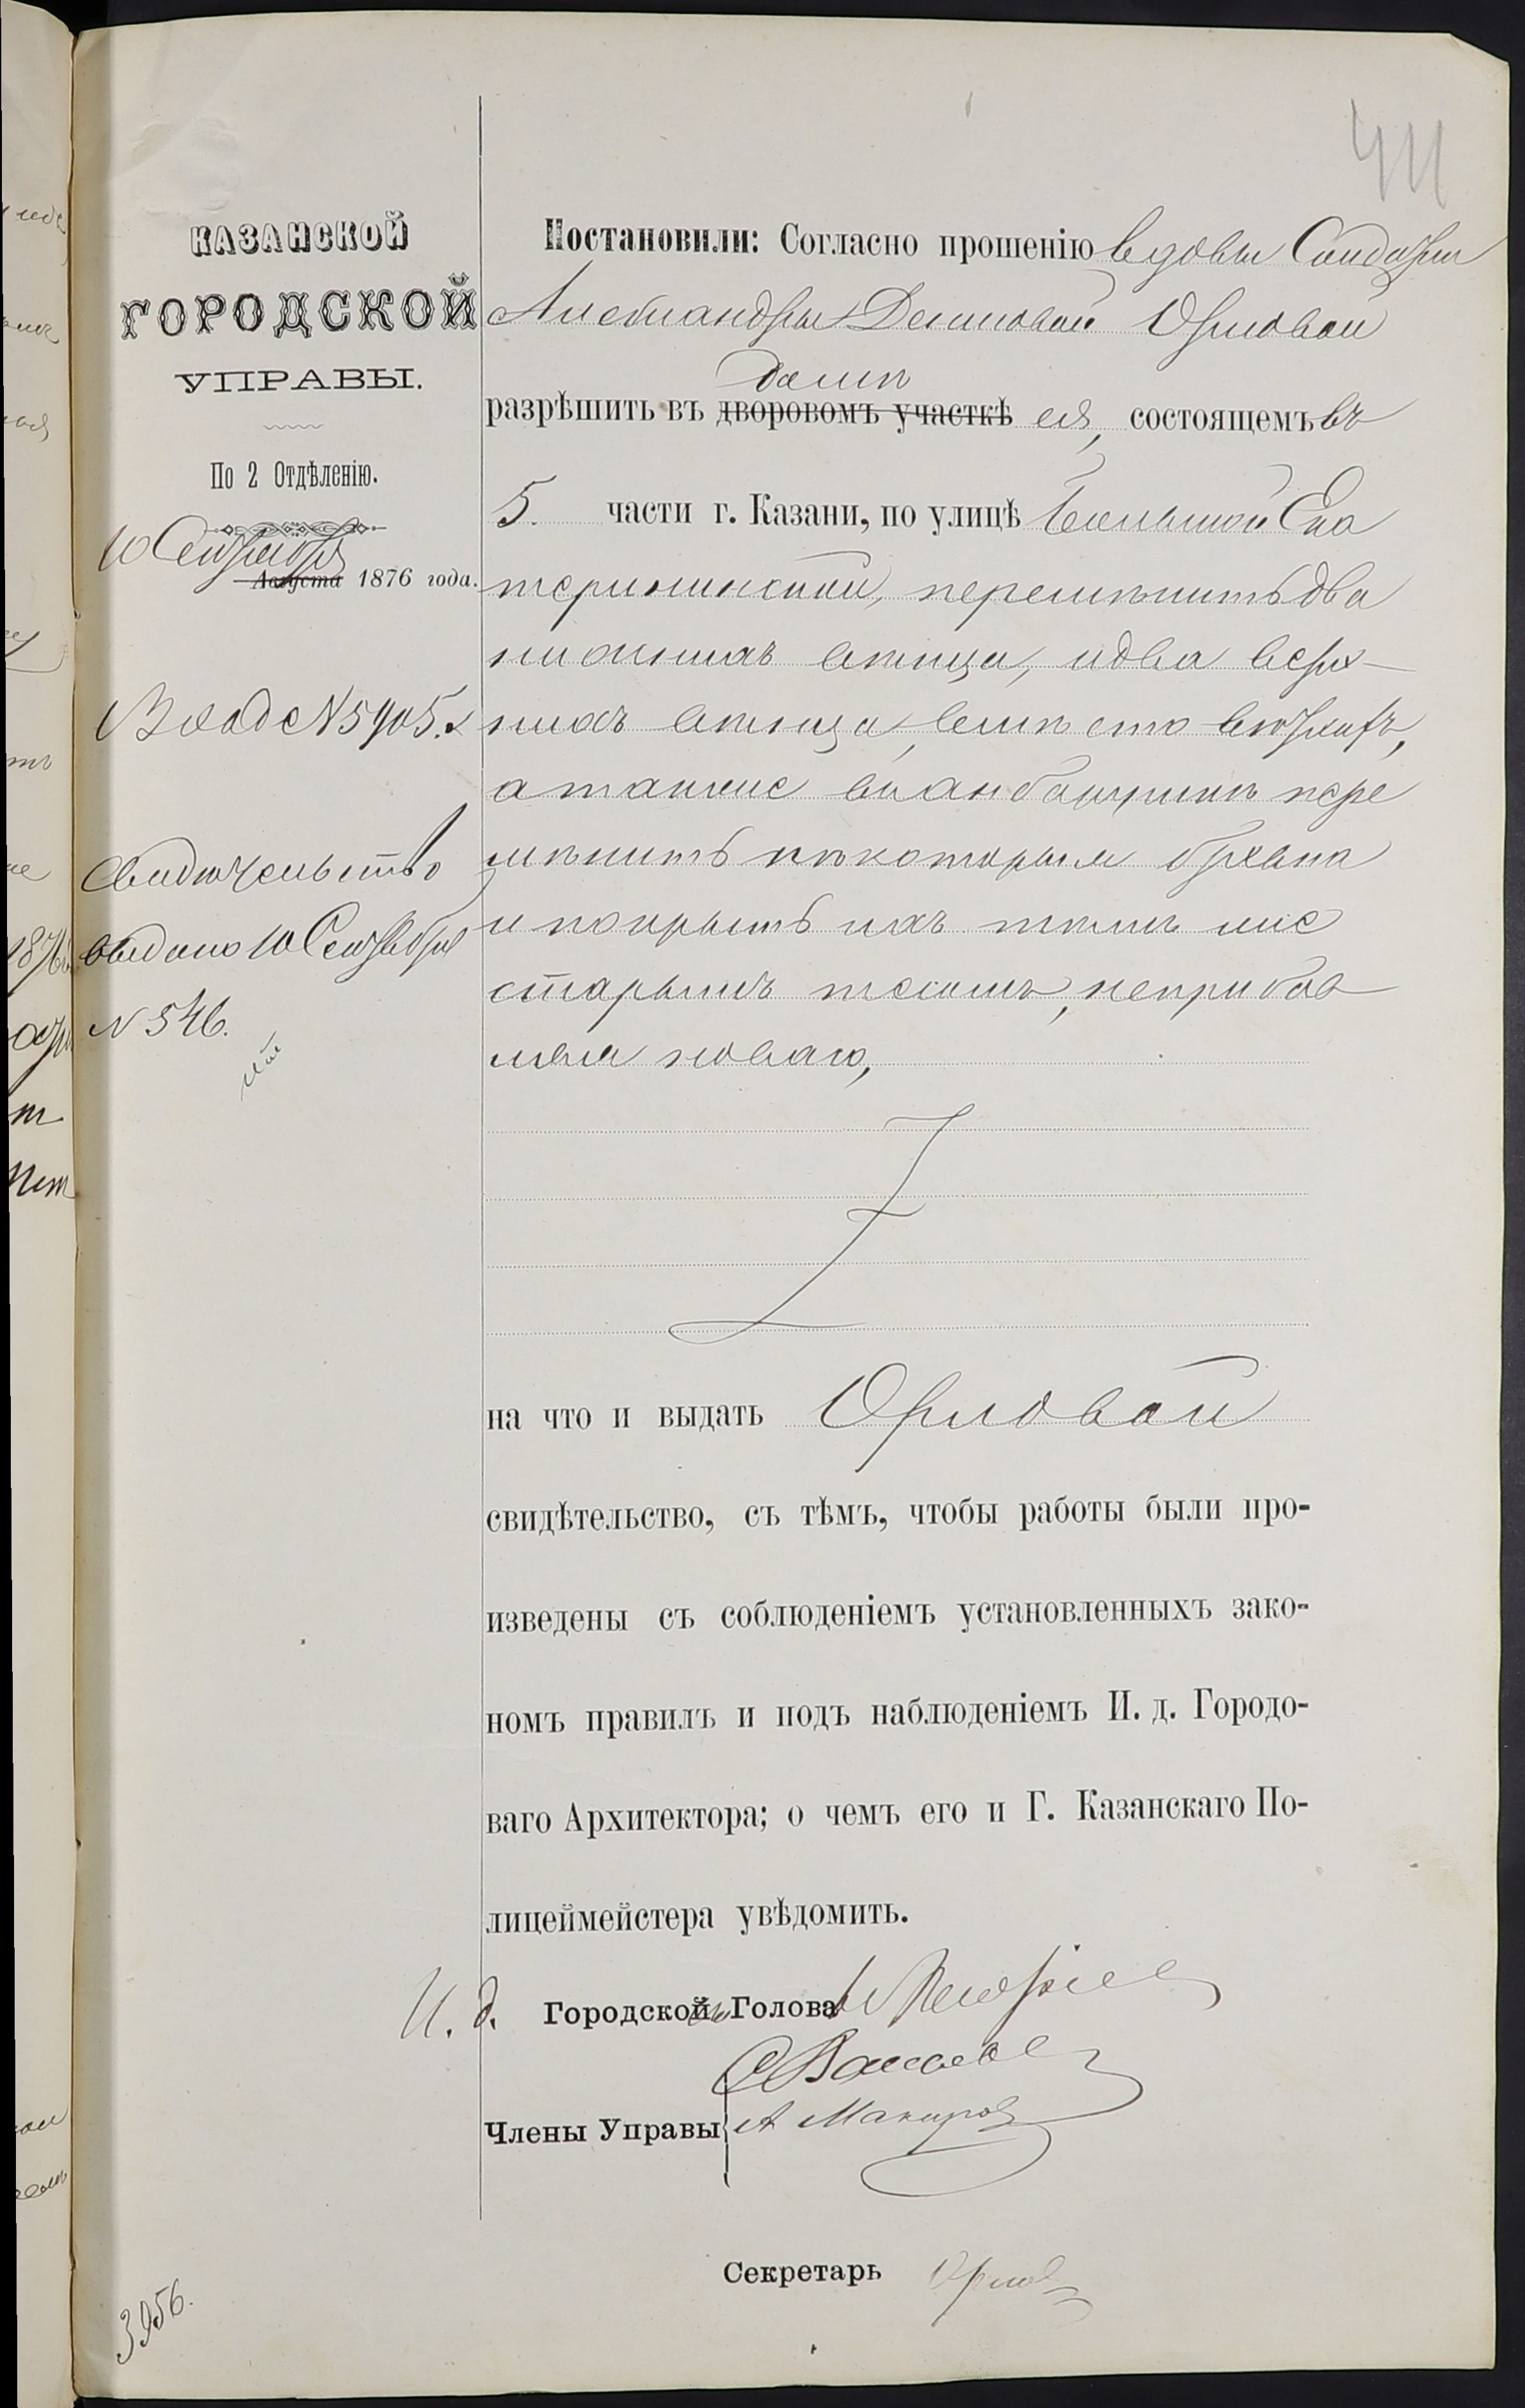 44
КАЗАНСКОЙ
ГОРОДСКОЙ
УПРАВЫ.
По 2 Отдѣленію.
10 Сентября
Августа 1876 года.
Вход № 5905.
Свидѣтельство
выдано 10 Сентября
№ 546.
Постановили: Согласно прошенію вдовы
Александры Денисовой Орловой
домѣ
разрѣшить въ дворовомъ участкѣ ея, состоящемъ въ
5. части г. Казани, по улицѣ Большой Ека
терининской, перемѣнить два
нижнихъ вѣнца, и два верх-
нихъ вѣнца, вмѣсто
а также въ амбарушкѣ пере
мѣнить нѣкоторыя бревна
и покрыть ихъ тѣмъ же
старымъ тесомъ, неприбав
ляя новаго,
на что и выдать Орловой
свидѣтельство, съ тѣмъ, чтобы работы были про-
изведены съ соблюденіемъ установленныхъ зако-
номъ правилъ и подъ наблюденіемъ И. д. Городо-
ваго Архитектора; о чемъ его и Г. Казанскаго По-
лицеймейстера увѣдомить.
И. д. Городской Голова
Члены Управы
Секретарь Орлов
3956.